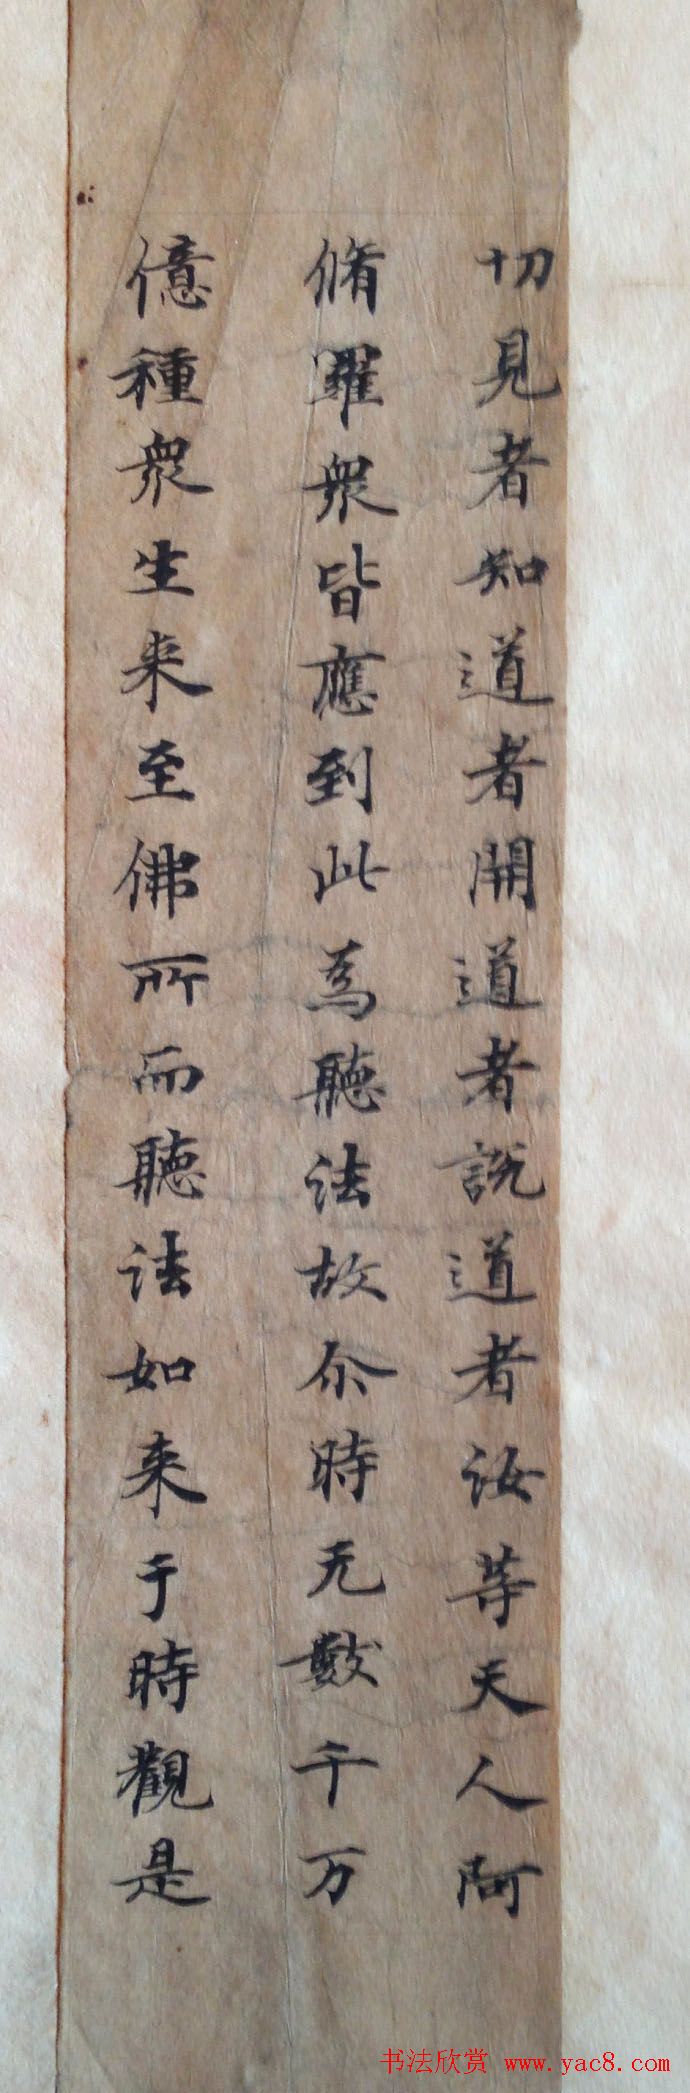 切見者知道者開道者説道者汝等天人阿
脩羅衆皆應到此為聽法故尒時无數千万
億種衆生来至佛所而聽法如来于時觀是
书法欣赏 www.yac8.com